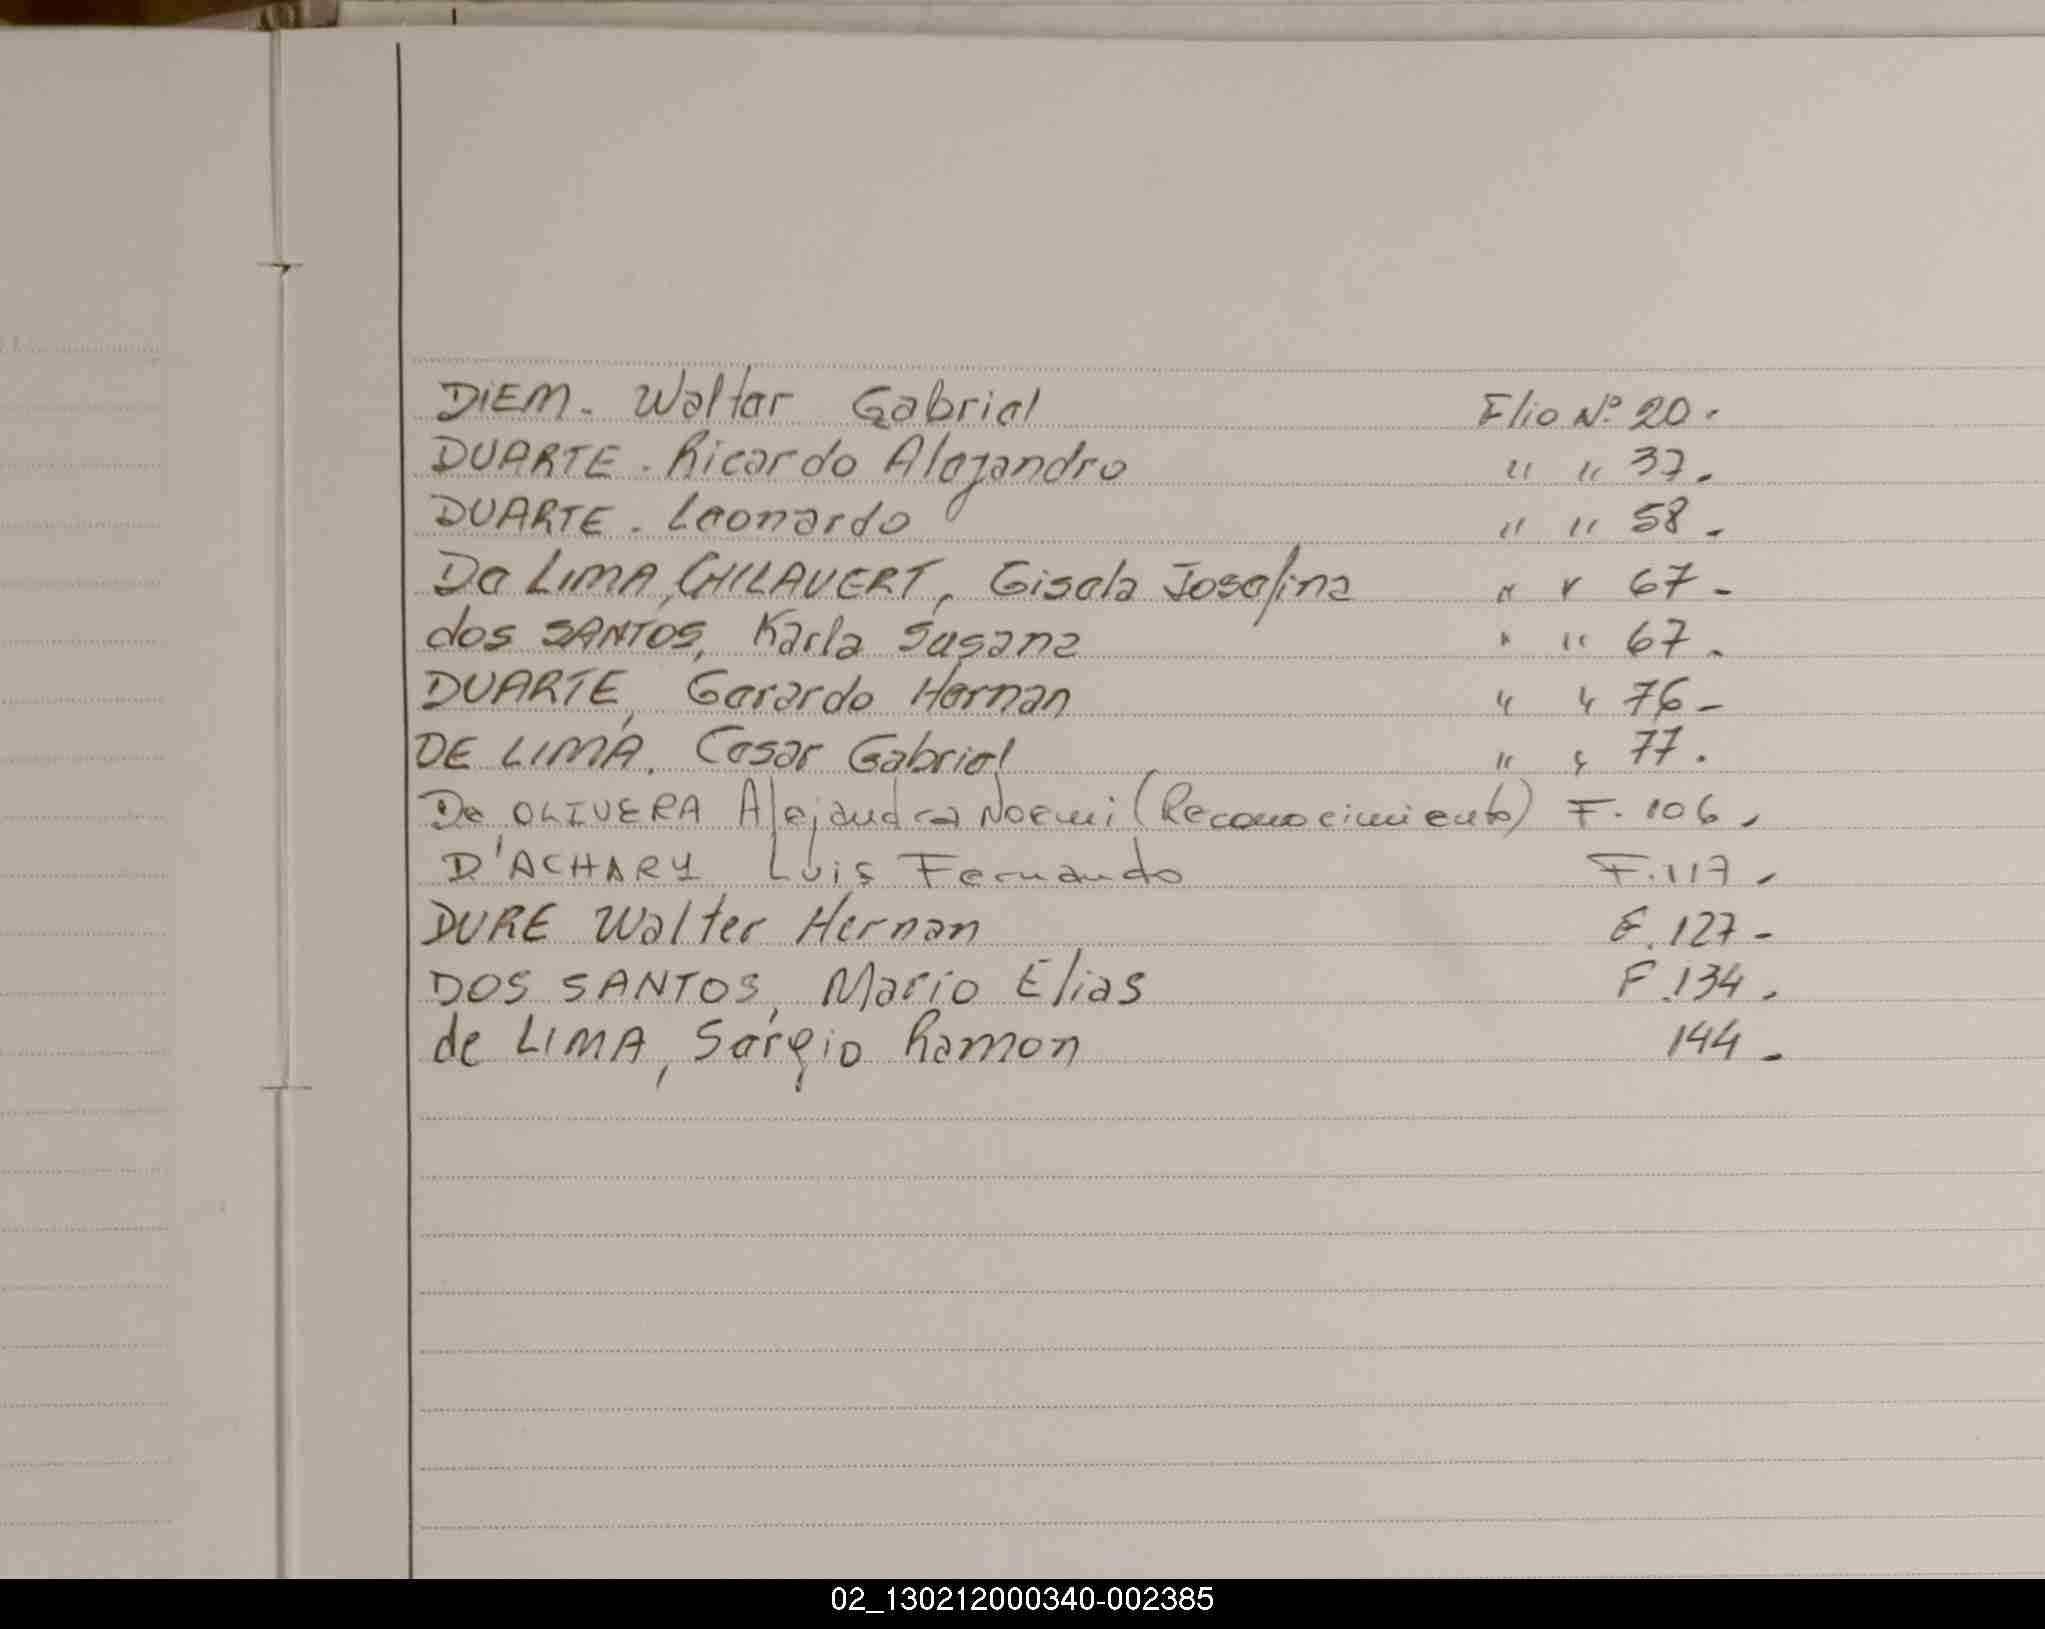 DIEM. Walter Gabriel Flio Nº 20.
DUARTE. Ricardo Alejandro " " 37.
DUARTE. Leonardo " " 58.
De LIMA, CHILAVERT, Gisela Josefina " " 67-
dos SANTOS, Karla Susana " " 67.
DUARTE, Gerardo Hernan " " 76-
DE LIMA. Cesar Gabriel " " 77.
De OLIVERA Alejandra Noemi (Reconocimiento) F. 106.
D'ACHARY Luis Fernando F. 117.
DURE Walter Hernan F. 127-
DOS SANTOS, Mario Elias F. 134.
de LIMA, Sergio Ramon 144-
02_130212000340-002385